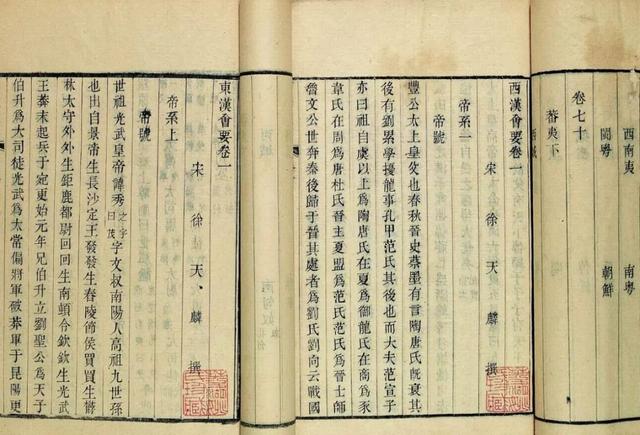 西南夷　南粤
閩粤　朝鮮
蕃夷下
卷七十
西漢會要卷一
宋　徐　天　麟　撰
帝系一
帝號
豐公太上皇父也春秋晉史蔡墨有言陶唐氏旣衰其
後有劉累學擾龍事孔甲范氏其後也而大夫范宣子
亦曰祖自虞以上爲陶唐氏在夏爲御龍氏在商爲豕
韋氏在周爲唐杜氏晉主夏盟爲范氏范氏爲晉士師
魯文公世奔秦後歸于晉其處者爲劉氏劉向云戰國
東漢會要卷一
宋　徐　天　麟　撰
帝系上
帝號
世祖光武皇帝諱秀之字曰茂字文叔南陽人高祖九世孫
也出自景帝生長沙定王發發生舂陵節侯買買生鬱
林太守外外生鉅鹿都尉回回生南頓令欽欽生光武
王莽末起兵于宛更始元年兄伯升立劉聖公爲天子
伯升爲大司徒光武爲太常偏將軍破莽軍于昆陽更